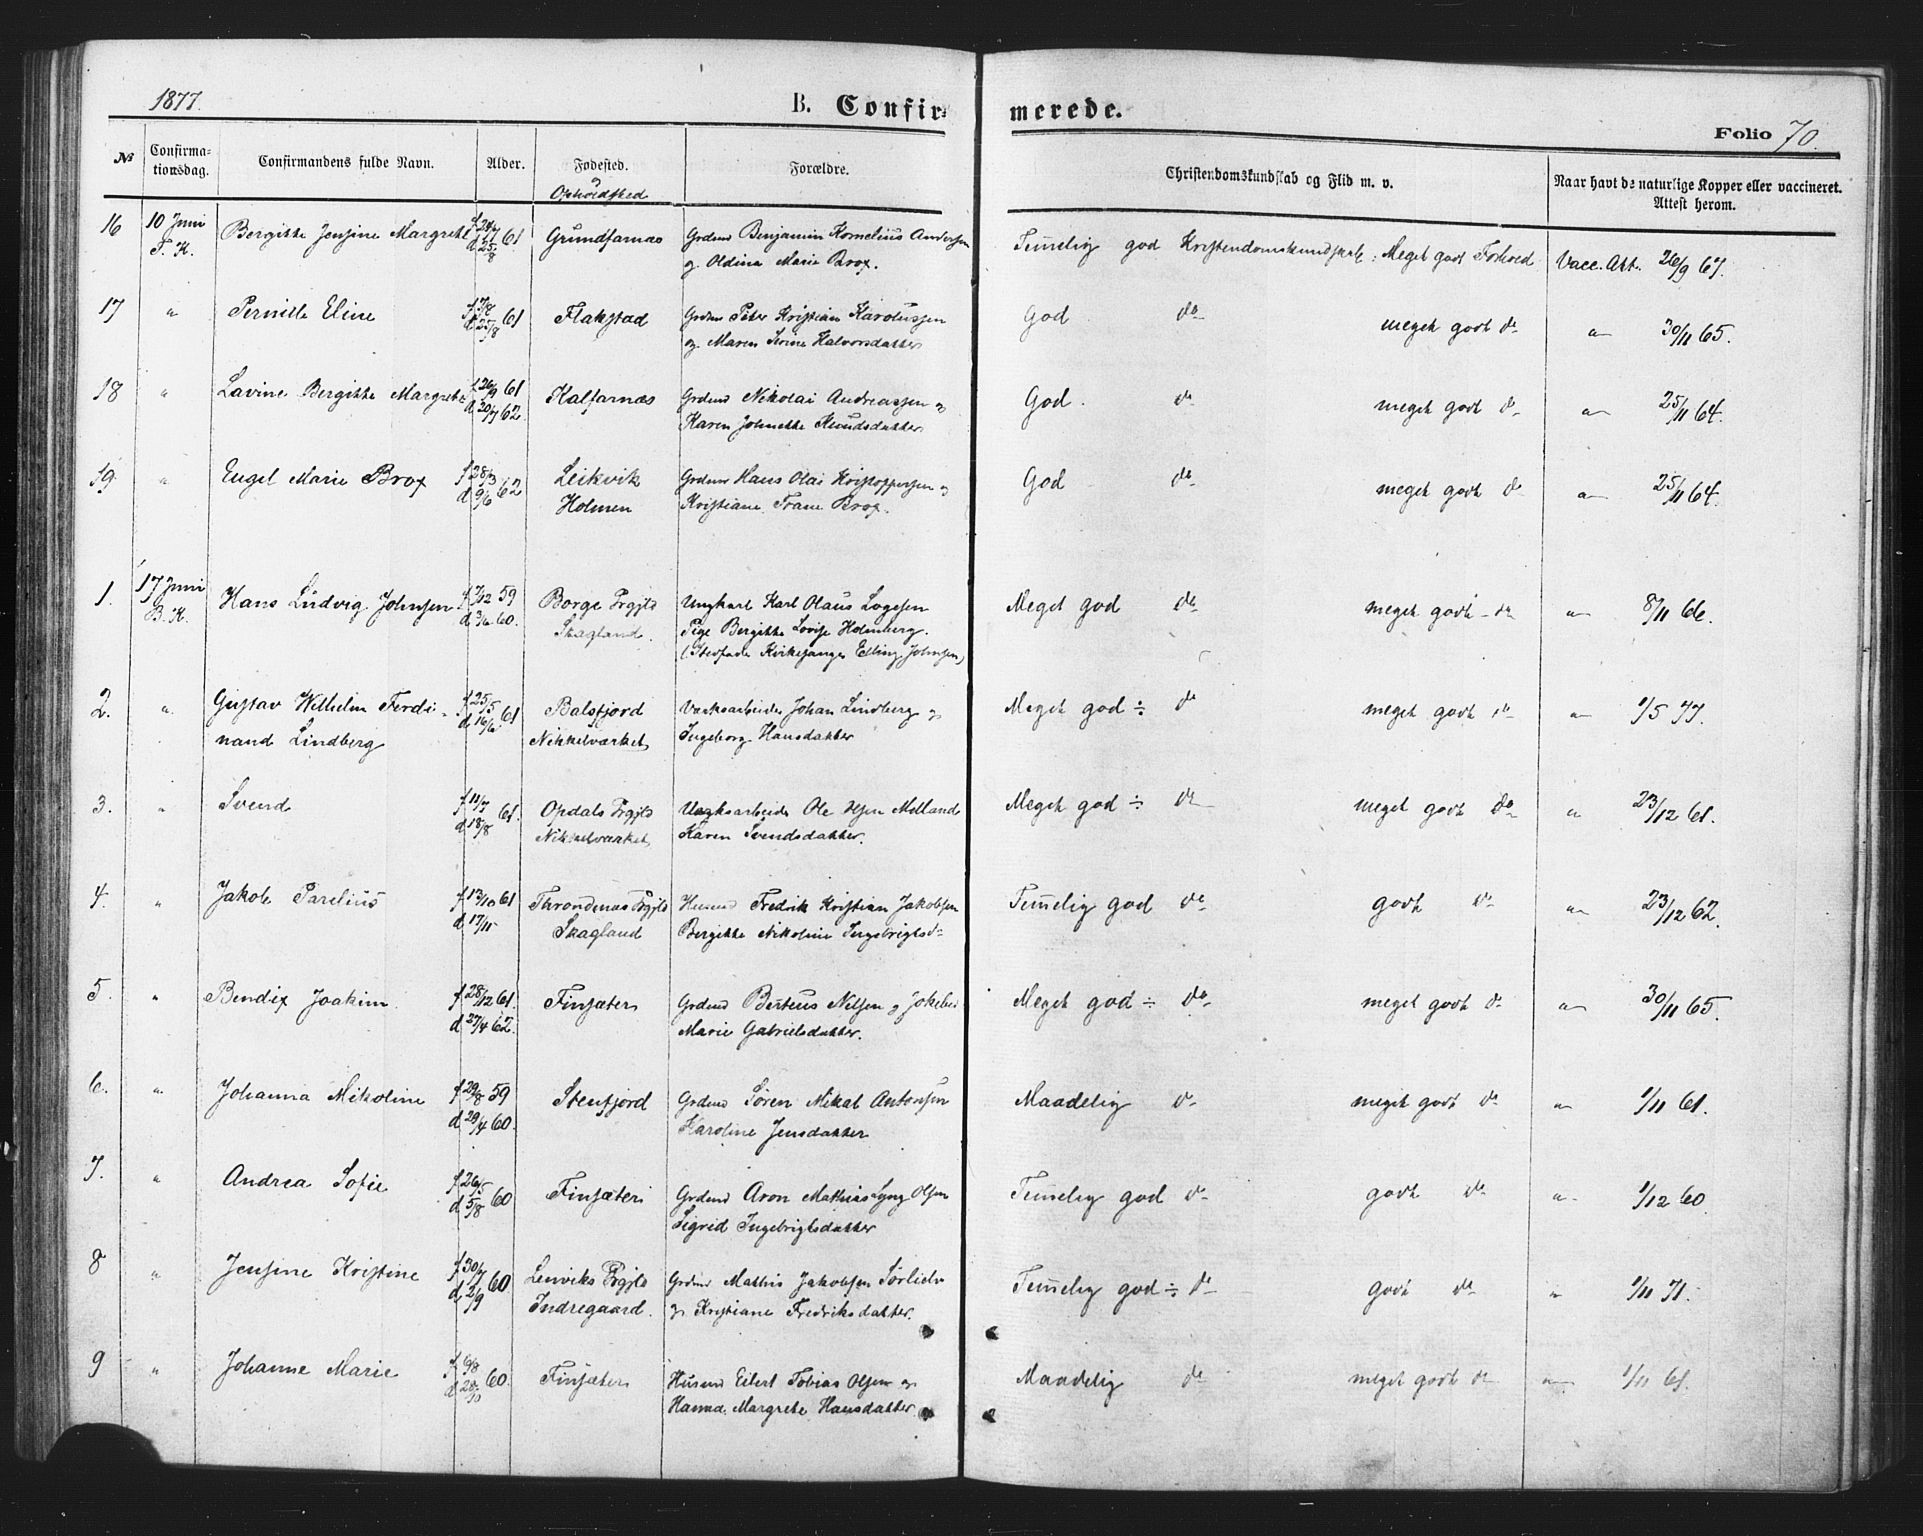 1877.
B. Confir-
merede.
Folio 70.
№
Confirma-
tionsdag.
Confirmandens fulde Navn.
Alder.
Fødested.
Forældre.
Christendomskundskab og Flid m. v.
Naar havt de naturlige Kopper eller vaccineret.
Attest herom.
16 10 Juni Bergitte Jensine Margrete 61 Grundfarnæs Grdmd Benjamin Kornelius Andersen Temelig god Kristendomskundskab: Meget godt Forhold Vacc. Att. 26/9 67.
F. K. og Oldina Marie Brox.
17 " Pernille Eline 61 Flakstad Grdmd Peter Kristian Karolussen God do meget godt do " 30/11 65.
og Maren Serine Halvorsdatter
18 " Lavine Bergitte Margrete f 26/9 61 Kalfarnæs Grdmd Nikolai Andreassen og God do meget godt do " 25/11 64.
d 20/7 62. Karen Johnette Knudsdatter
19 " Engel Marie Brox f 28/3 62 Leikvik Grdmd Hans Olai Kristoffersen og God do meget godt do " 25/11 64.
d 9/6 Holmen Kristiane Trane Brox.
1. 17 Juni Hans Ludvig Johnsen f 7/12 59 Borge Prgjld Ungkarl Karl Olaus Lagesen Meget god do meget godt do " 8/11 66.
B. K. d 3/6 60. Skagland. Pige Bergitte Lovise Holmberg.
(Stedfader Kirkesanger Elling Johnsen)
2. " Gustav Wilhelm Ferdi- f 25/5 61 Balsfjord Værksarbeider Johan Lindberg og Meget god ÷ do meget godt do " 1/5 77.
nand Lindberg d 16/6 Nikkelværket Ingeborg Hansdatter
3. " Svend f 11/7 61. Opdals Prgjld Værksarbeider Ole Olsen Melland Meget god ÷ do meget godt do " 23/12 61.
d 18/8 Nikkelværket Karen Svendsdatter.
4. " Jakob Parelius f 13/10 61 Throndenæs Prgjld Husmd Fredrik Kristian Jakobsen Temelig god do godt do " 23/12 62.
d 17/11 Skagland Bergitte Nikoline Ingebrigtsd-
5. " Bendix Joakim f 28/12 61. Finsæter Grdmd Berteus Nilsen og Meget god ÷ do meget godt do " 30/11 65.
d 27/4 62. Marie Gabrielsdatter.
6. " Johanna Nikoline f 29/8 59 Stenfjord Grdmd Søren Mikal Antonsen Maadelig do meget godt do " 1/11 61.
d 29/4 60. Karoline Jensdatter
7. " Andrea Sofie f 26/5 60 Finsæter Grdmd Aron Mathias Lyng Olsen Temelig god do godt do " 1/12 60
d 5/8 Sigrid Ingebrigtsdatter
8 " Jensine Kristine f 30/7 60 Lenviks Prgjld Grdmd Mathis Jakobsen Sørlielv Temelig god ÷ do godt do " 1/11 71.
d 2/9 Indregaard. og Kristiane Fredriksdatter.
9 " Johanne Marie f 6/8 60. Finsæter Husmd Eilert Tobias Olsen og Maadelig do meget godt do " 1/11 61.
d Hanna Margrete Hansdatter.